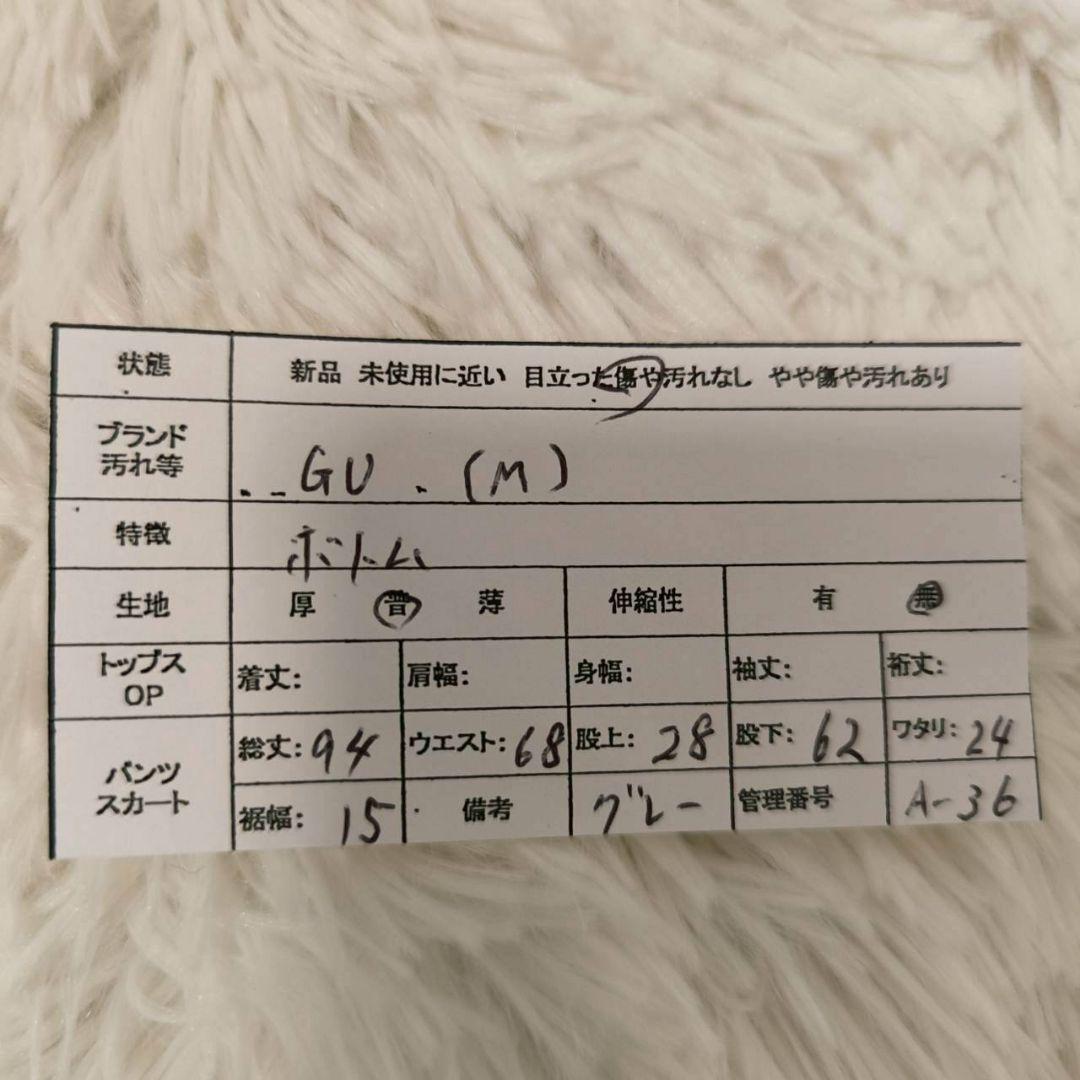 状態 新品 未使用に近い 目立った傷や汚れなし やや傷や汚れあり
ブランド
汚れ等 GU (M)
特徴 ボトム
生地 厚 普 薄 伸縮性 有 無
トップス
OP 着丈: 肩幅: 身幅: 袖丈: 裄丈:
パンツ
スカート 総丈:94 ウエスト:68 股上:28 股下:62 ワタリ:24
裾幅:15 備考 グレー 管理番号 A-36